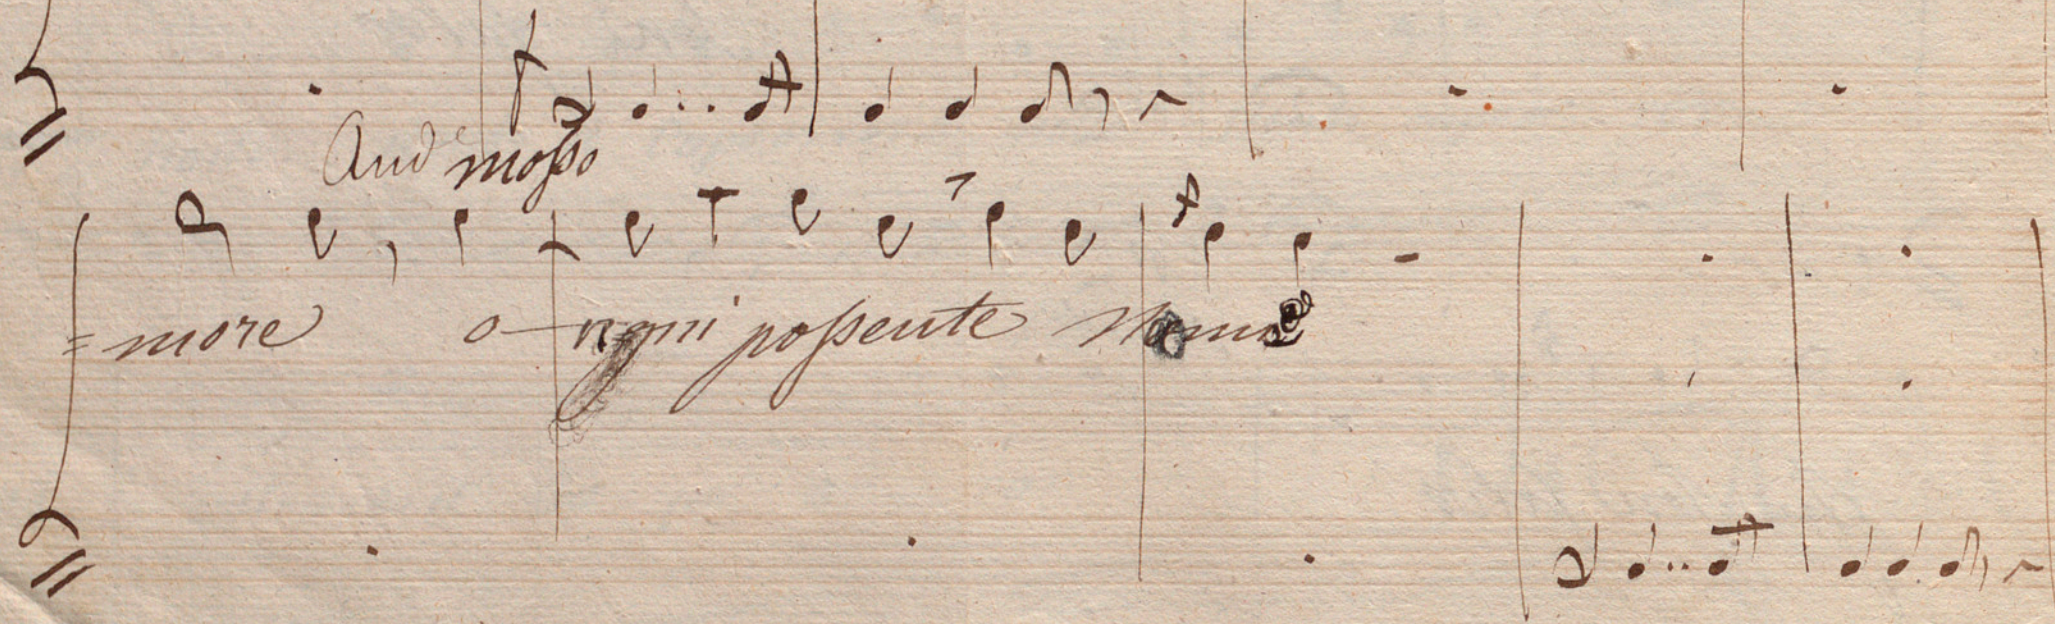 And.e mosso
=more o-gni possente Nume